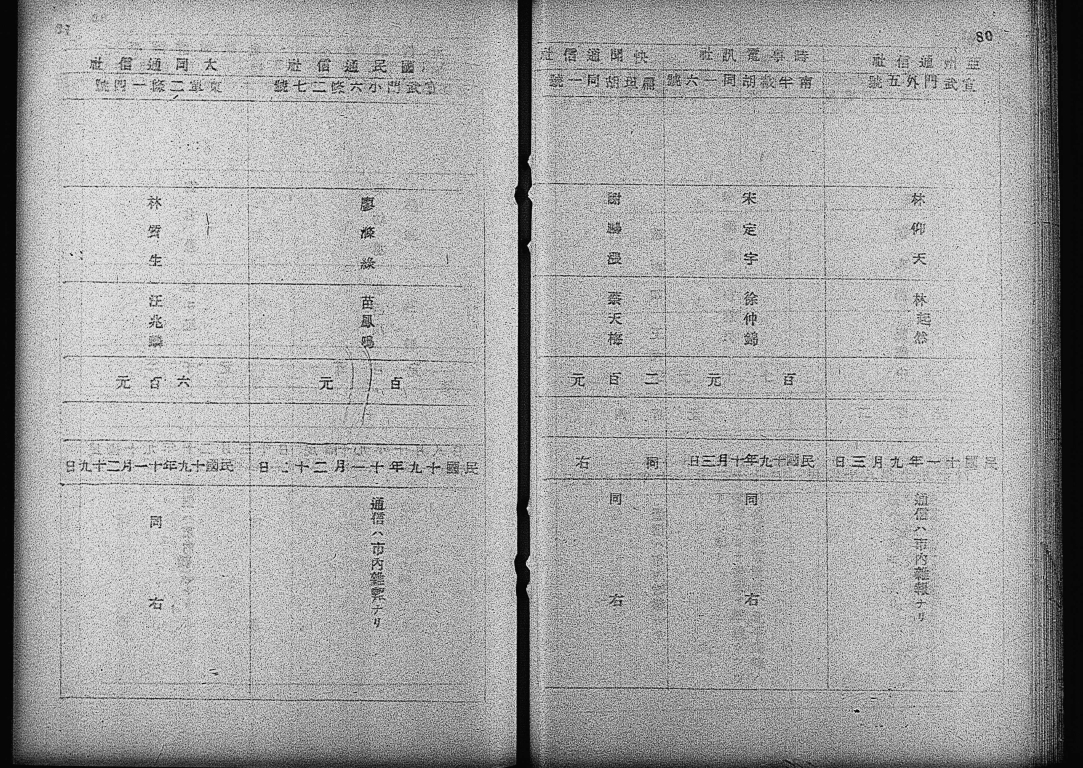 80
亞州通信社
宣武門外五號
林仰天
林起然
民國十一年九月三日
通信ハ市内雜報ナリ
時學電訊社
南半截胡同一六號
宋定宇
徐仲
百元
民國十九年十月三日
同右
快聞通信社
胡同一號
謝漫
蔡天梅
二百元
同右
同右
國民通信社
宣武門小六條二七號
廖
苗鳳鳴
百元
民國十九年十一月二十二日
通信ハ市内雜報ナリ
太同通信社
東單二條一四號
林質生
汪兆麟
六百元
民國十九年十一月二十九日
同右